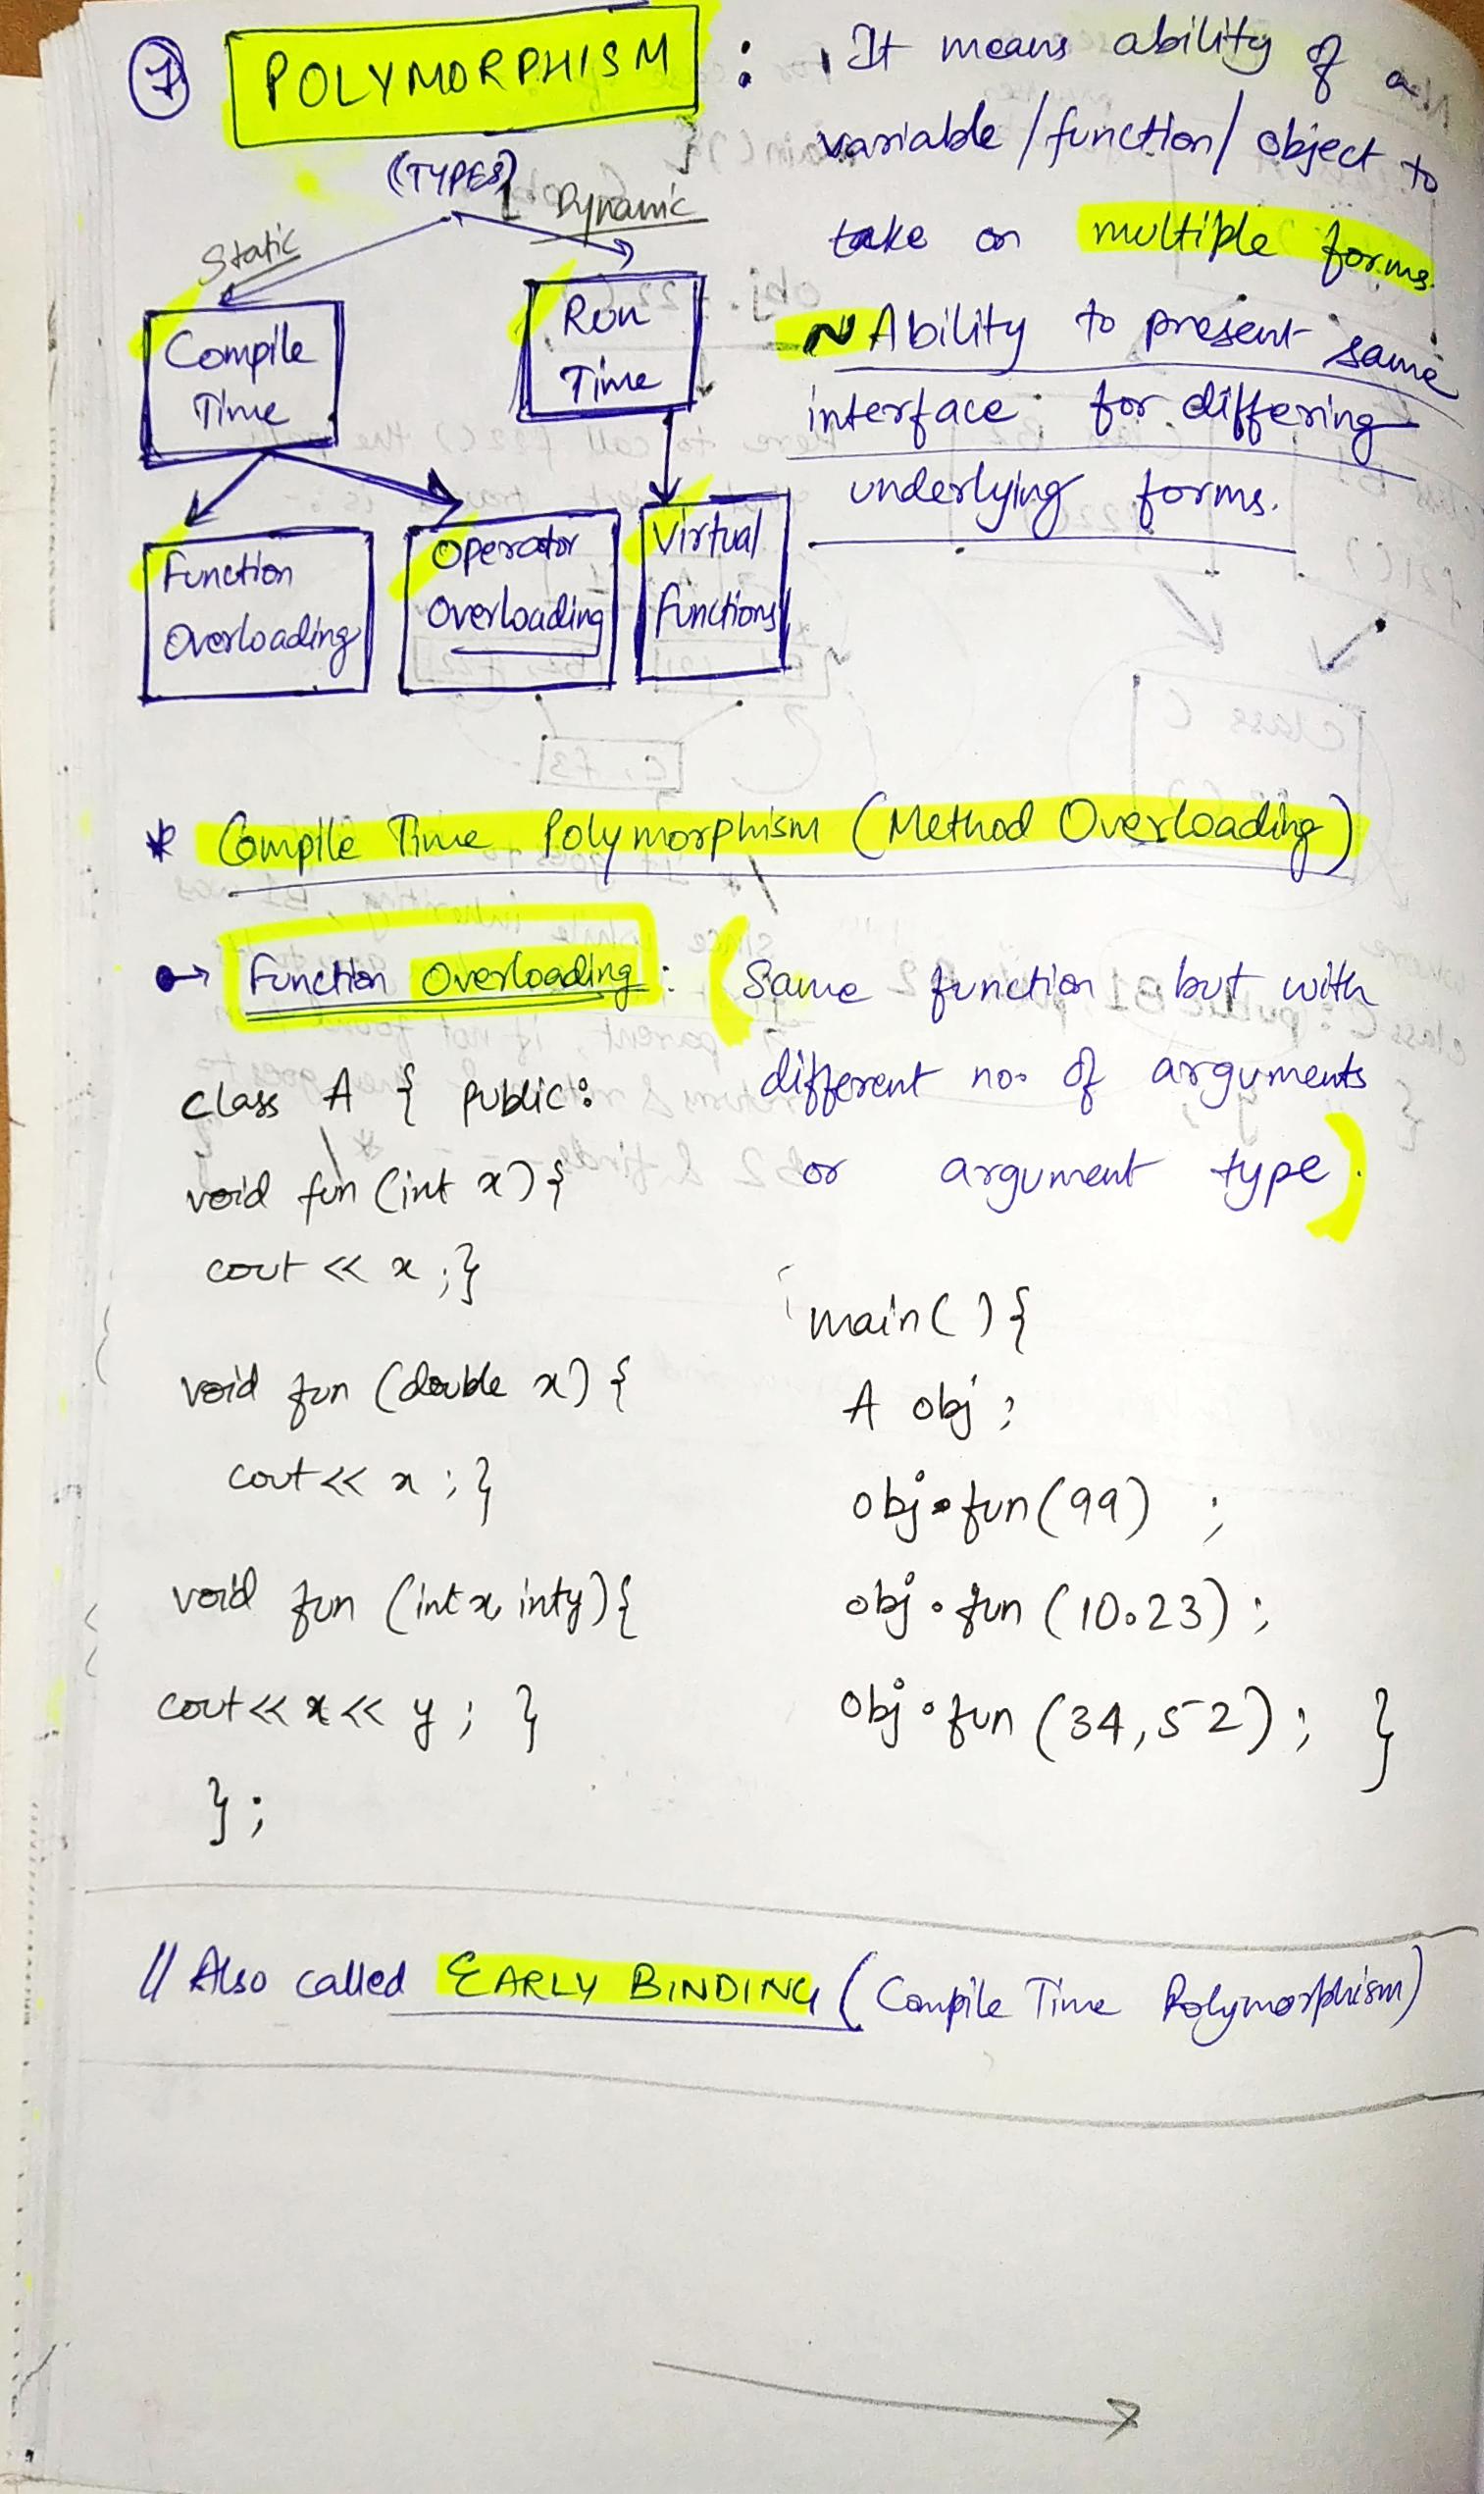 7 POLYMORPHISM : It means ability of a
variable / function / object to
take on multiple forms.
~ Ability to present same
interface for differing
underlying forms.
(TYPES)
Static Dynamic
Compile
Time
Run
Time
Function
Overloading
Operator
Overloading
Virtual
functions
* Compile Time Polymorphism (Method Overloading)
→ Function Overloading : (Same function but with
different no. of arguments
or argument type).
class A { public:
void fun (int x) {
cout << x ; }
void fun (double x) {
cout << x ; }
void fun (int x, int y) {
cout << x << y ; }
} ;
main( ) {
A obj ;
obj.fun(99) ;
obj.fun (10.23) ;
obj.fun (34,52) ; }
// Also called EARLY BINDING (Compile Time Polymorphism)